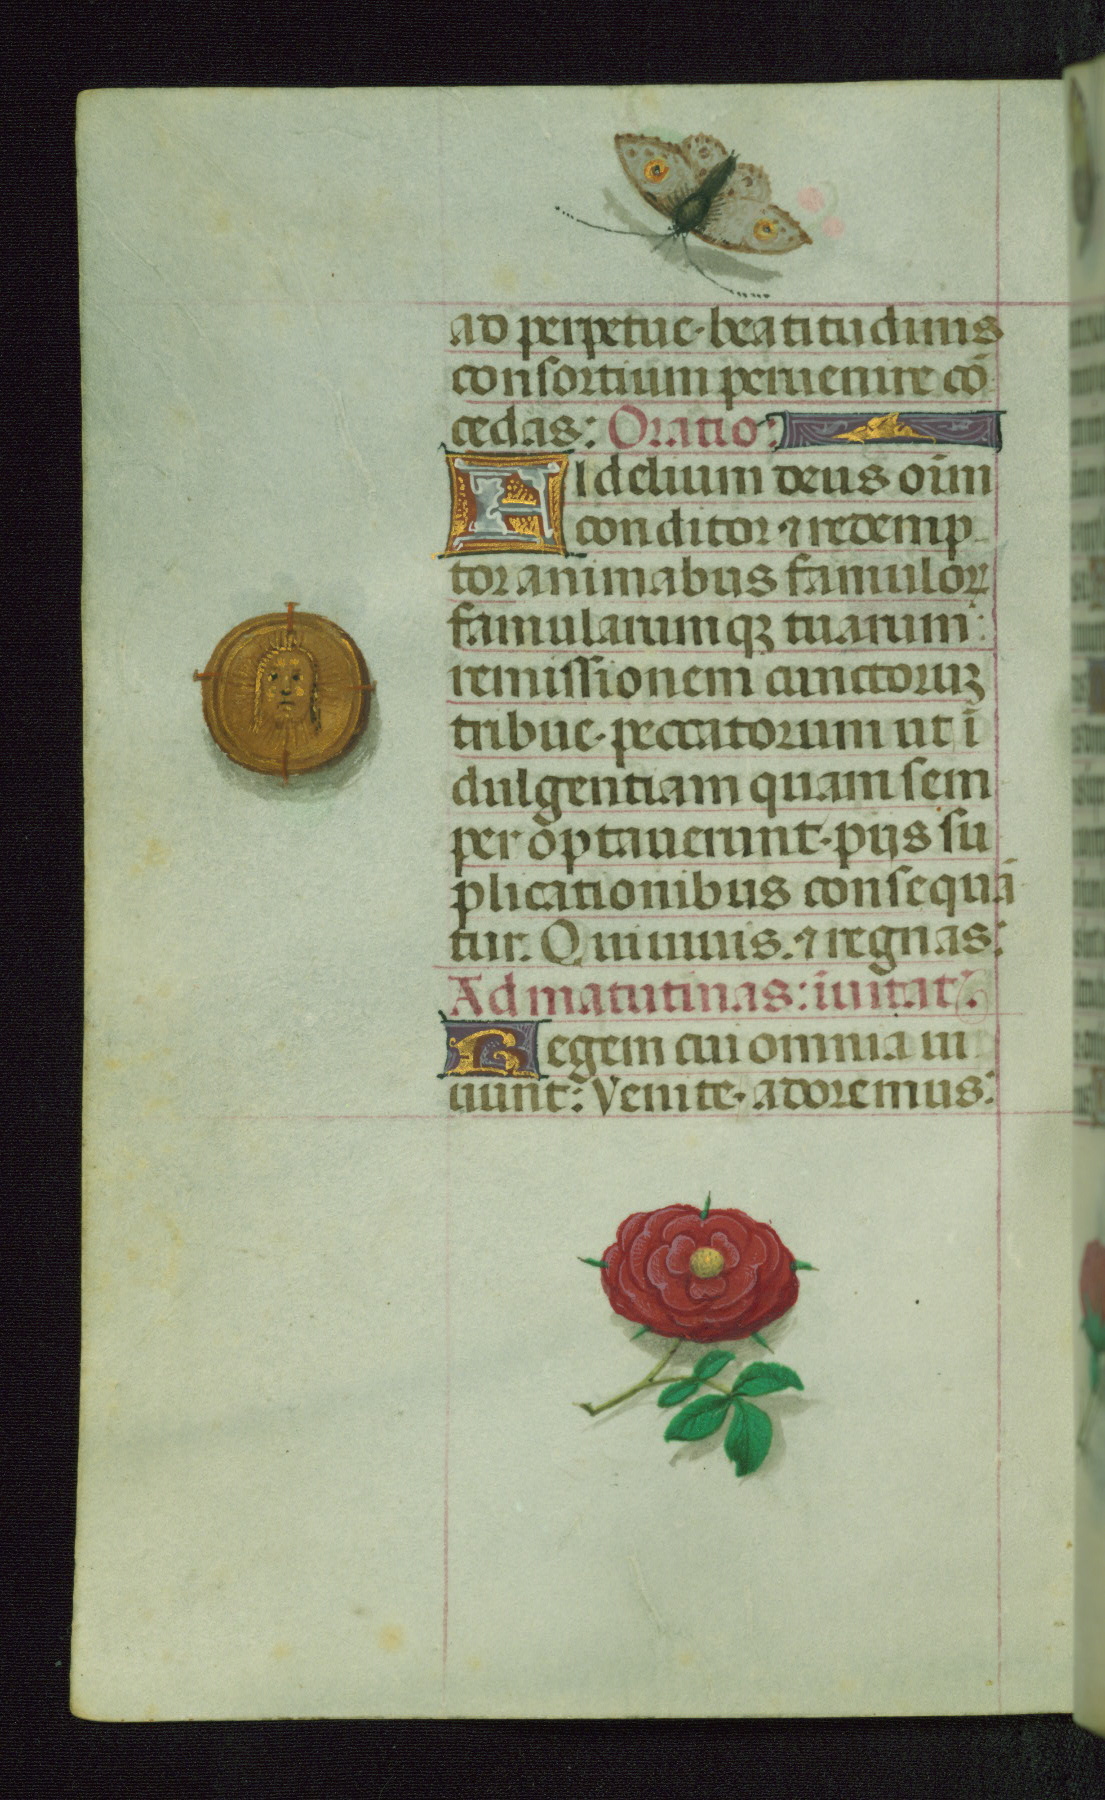 ad perpetue·beatitudinis
consortium peruenire cō
cedas: Oratio:
Fidelium deus oīm
conditor ⁊ redemp
tor animabus famulorꝝ
famularumqꝫ tuarum:
remissionem cunctoruꝫ
tribue·peccatorum ut ī
dulgentiam quam sem
per optauerunt·pijs su
plicationibus consequā
tur. Qui uiuis.⁊ regnas:
Ad matutinas: īuitat᷒.
Regem cui omnia ui
uunt: Venite·adoremus: